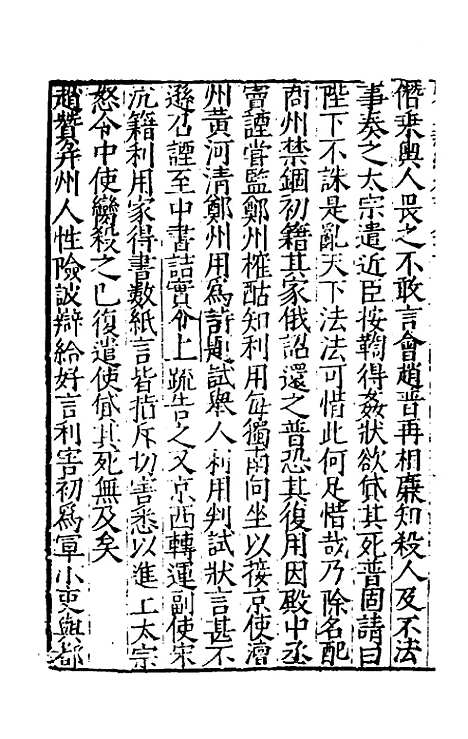 僭乘輿人畏之不敢言會趙普再相廉知殺人及不法
事奏之太宗遣近臣按鞫得姦狀欲貸其死普固請曰
陛下不誅是亂天下法法可惜此何足惜哉乃除名配
商州禁錮初籍其家俄詔還之普恐其復用因殿中丞
竇諲嘗監鄭州榷酤知利用每獨南向坐以接京使澶
州黃河清鄭州用爲詩題試舉人利用判試狀言甚不
遜召諲至中書詰實令上疏告之又京西轉運副使宋
沆籍利用家得書數紙言皆指斥切害悉以進上太宗
怒令中使臠殺之已復遣使貸其死無及矣
趙贊并州人性險詖辯給好言利害初爲軍小吏與都